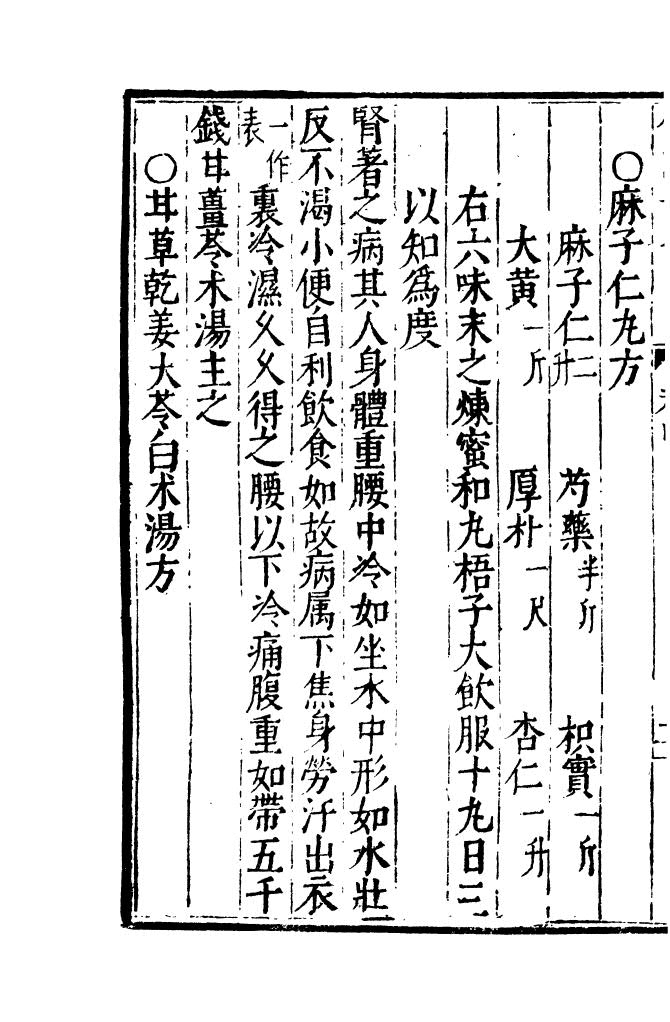 ○麻子仁丸方
麻子仁二升 芍藥半斤 枳實一斤
大黄一斤 厚朴一尺 杏仁一升
右六味末之煉蜜和丸梧子大飲服十丸日三
以知爲度
腎著之病其人身體重腰中冷如坐水中形如水壯
反不渴小便自利飲食如故病属下焦身勞汗出衣
一作表裏冷濕久久得之腰以下冷痛腹重如帶五千
錢甘薑苓术湯主之
○甘草乾姜大苓白术湯方